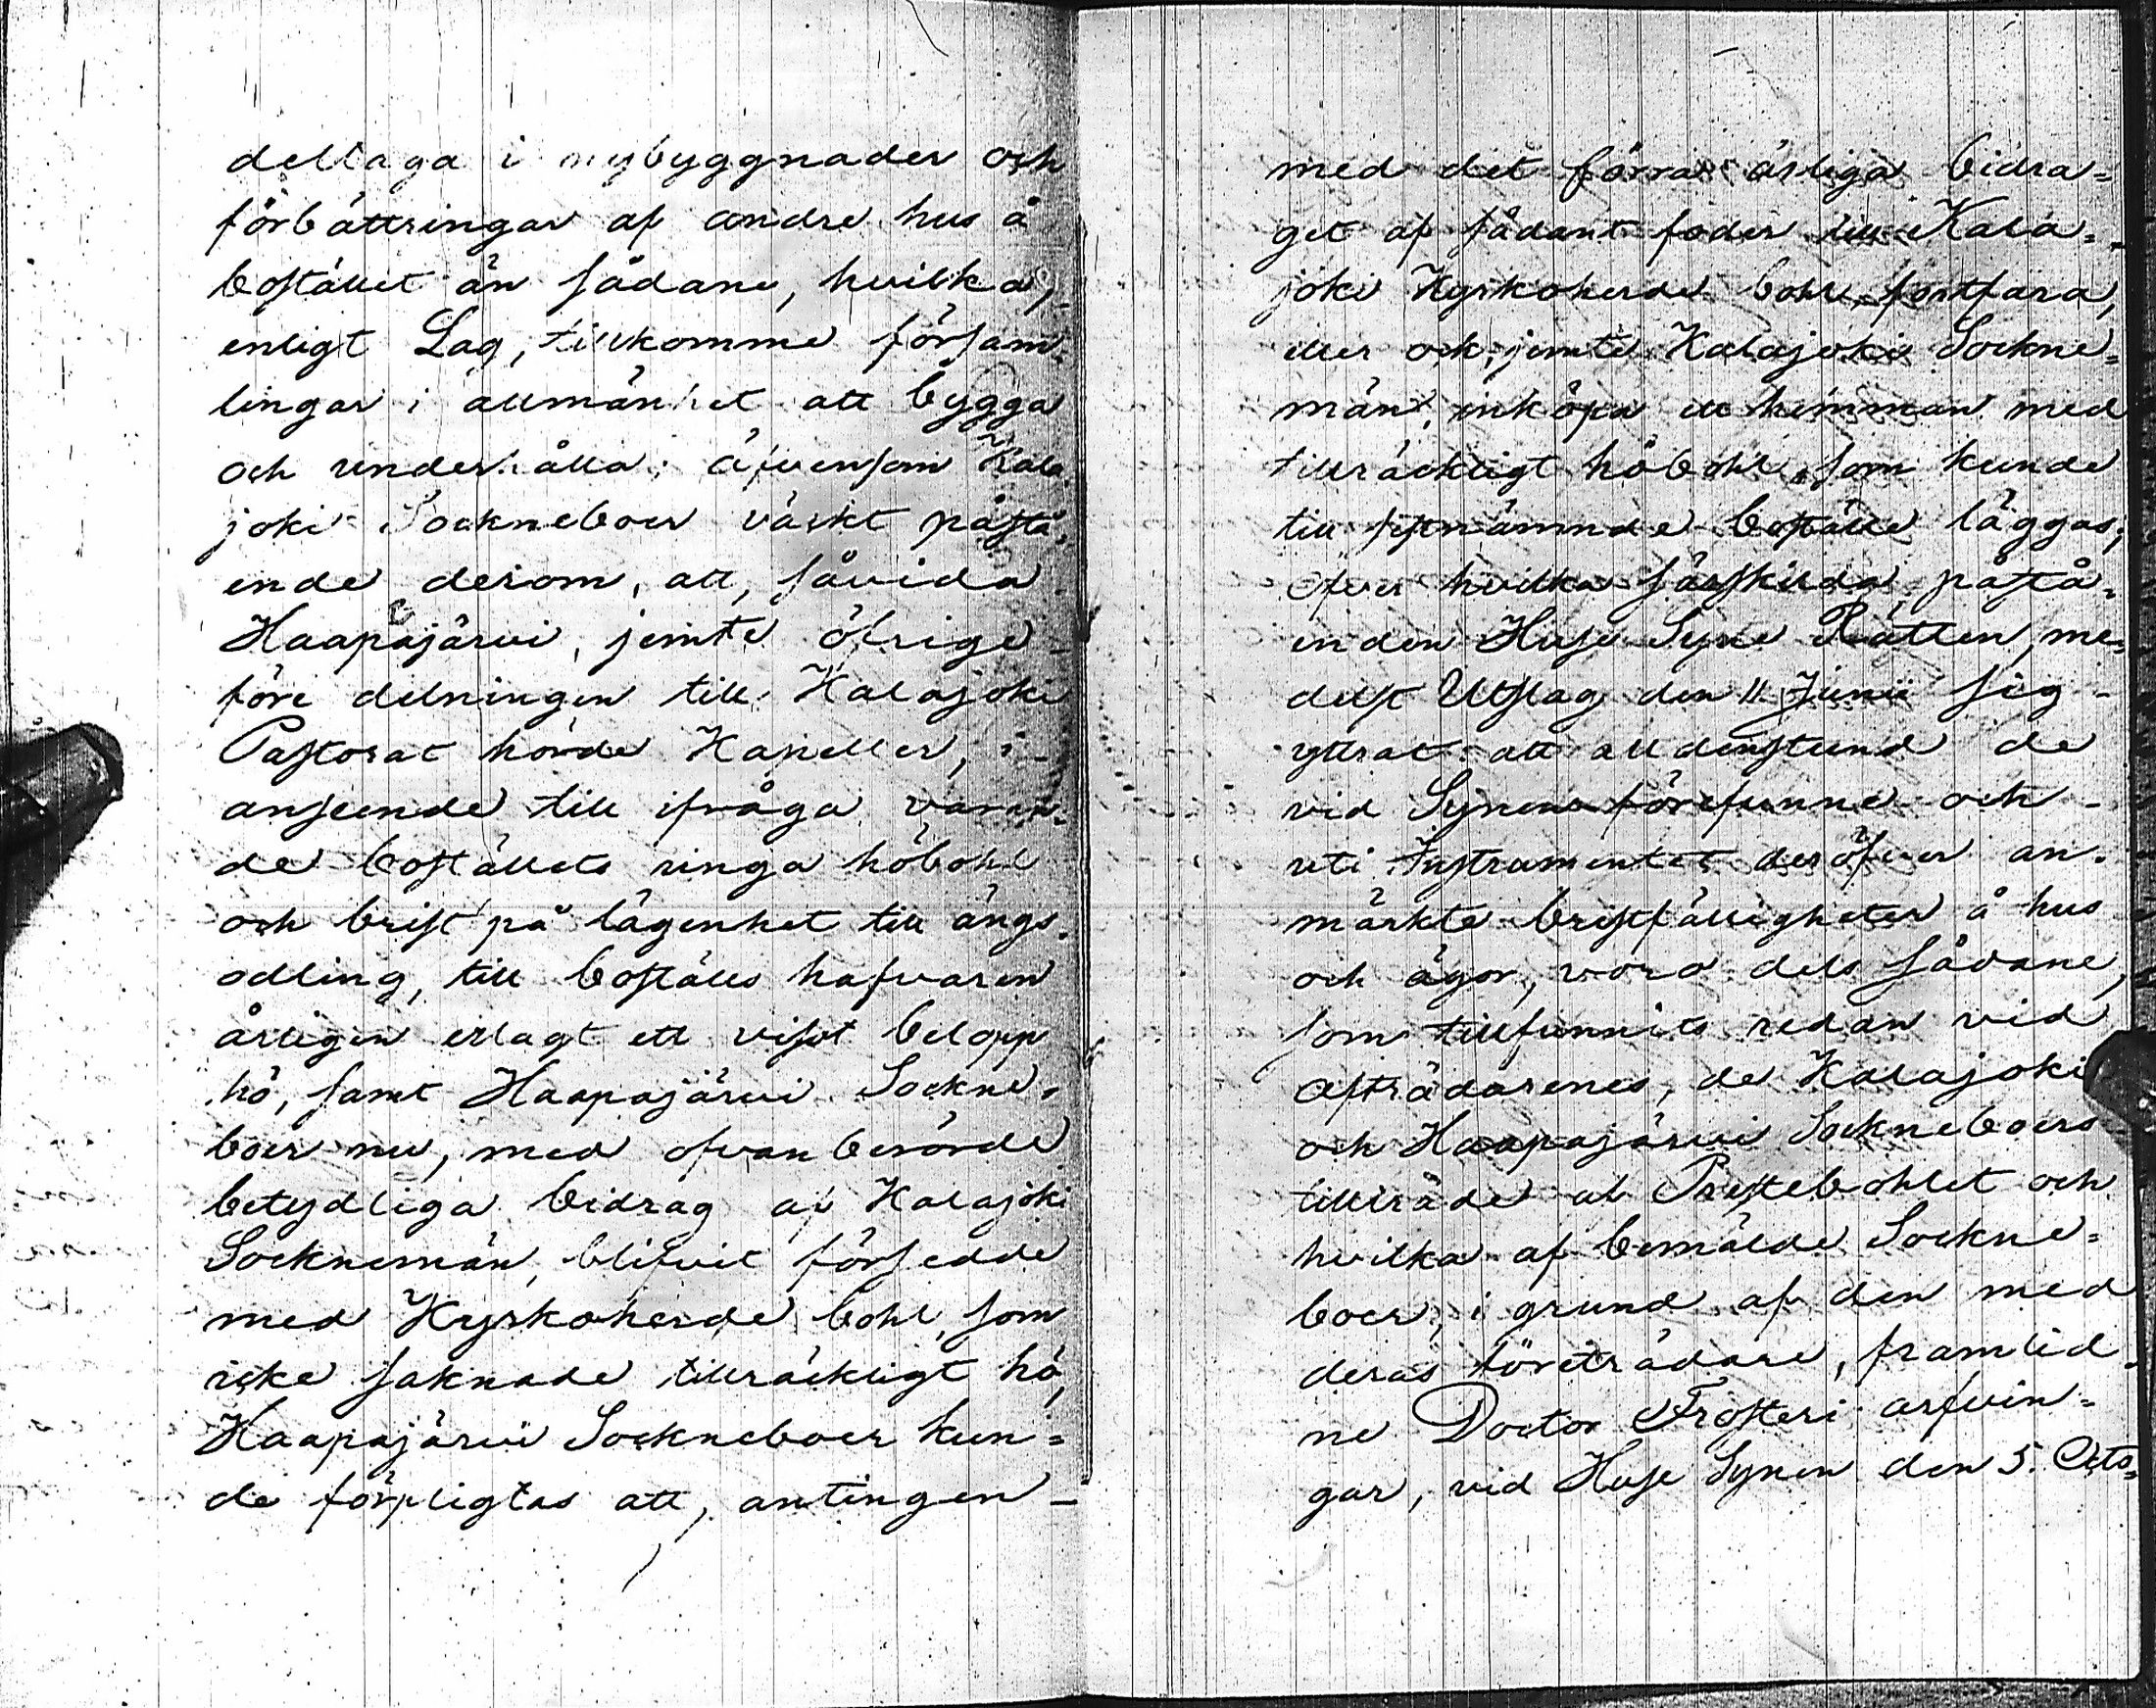 deltaga i nybyggnader och
förbättringar af andre hus å
bostället än sådane, hvilka,
enligt Lag, tillkomme försam-
lingar i allmänhet att bygga
och underhålla; äfvensom Kala
joki Sockneboer väckt påstå-
ende derom, att, såvida
Haapajärwi, jemte öfrige
före delningen till Kalajoki
Pastorat hörde Kapeller, i
anseende till ifråga varan-
de boställets ringa höbohl
och brist på lägenhet till ängs-
odling, till Boställs hafvaren
årligen erlagt ett visst belopp
hö, samt Haapajärwi Sockne-
boer nu, med ofvanberörde
betydliga bidrag af Kalajoki
Socknemän, blifvit försedde
med Kyrkoherde bohl, som
icke saknade tillräckligt hö,
Haapajärwi Sockneboer kun=
de förpligtas att, antingen
med det förra årliga bidra=
get af sådant foder till Kala=
joki Kyrkoherde bohl fortfara,
eller ock, jemte Kalajoki Sockne=
män, inköpa ett hemman med
tillräckligt höbohl, som kunde
till sistnämnde boställe läggas;
öfver hvilka särskilda påstå-
enden Huse Syne Rätten, me-
delst Utslag den 11 Junii sig
yttrat: att alldenstund de
vid Synen förefunne och
uti Instrumentet deröfver an-
märkte bristfälligheter å hus
och ägor, voro dels sådane,
som tillfunnits redan vid
afträdarenes, de Kalajoki
och Haapajärwi Sockneboers
tillträde af Prestebohlet och
hvilka af bemälde Sockne=
boer, i grund af den med
deras företrädare, framlid-
ne Doctor Frosteri arfvin=
gar, vid Huse Synen den 5. Octo=